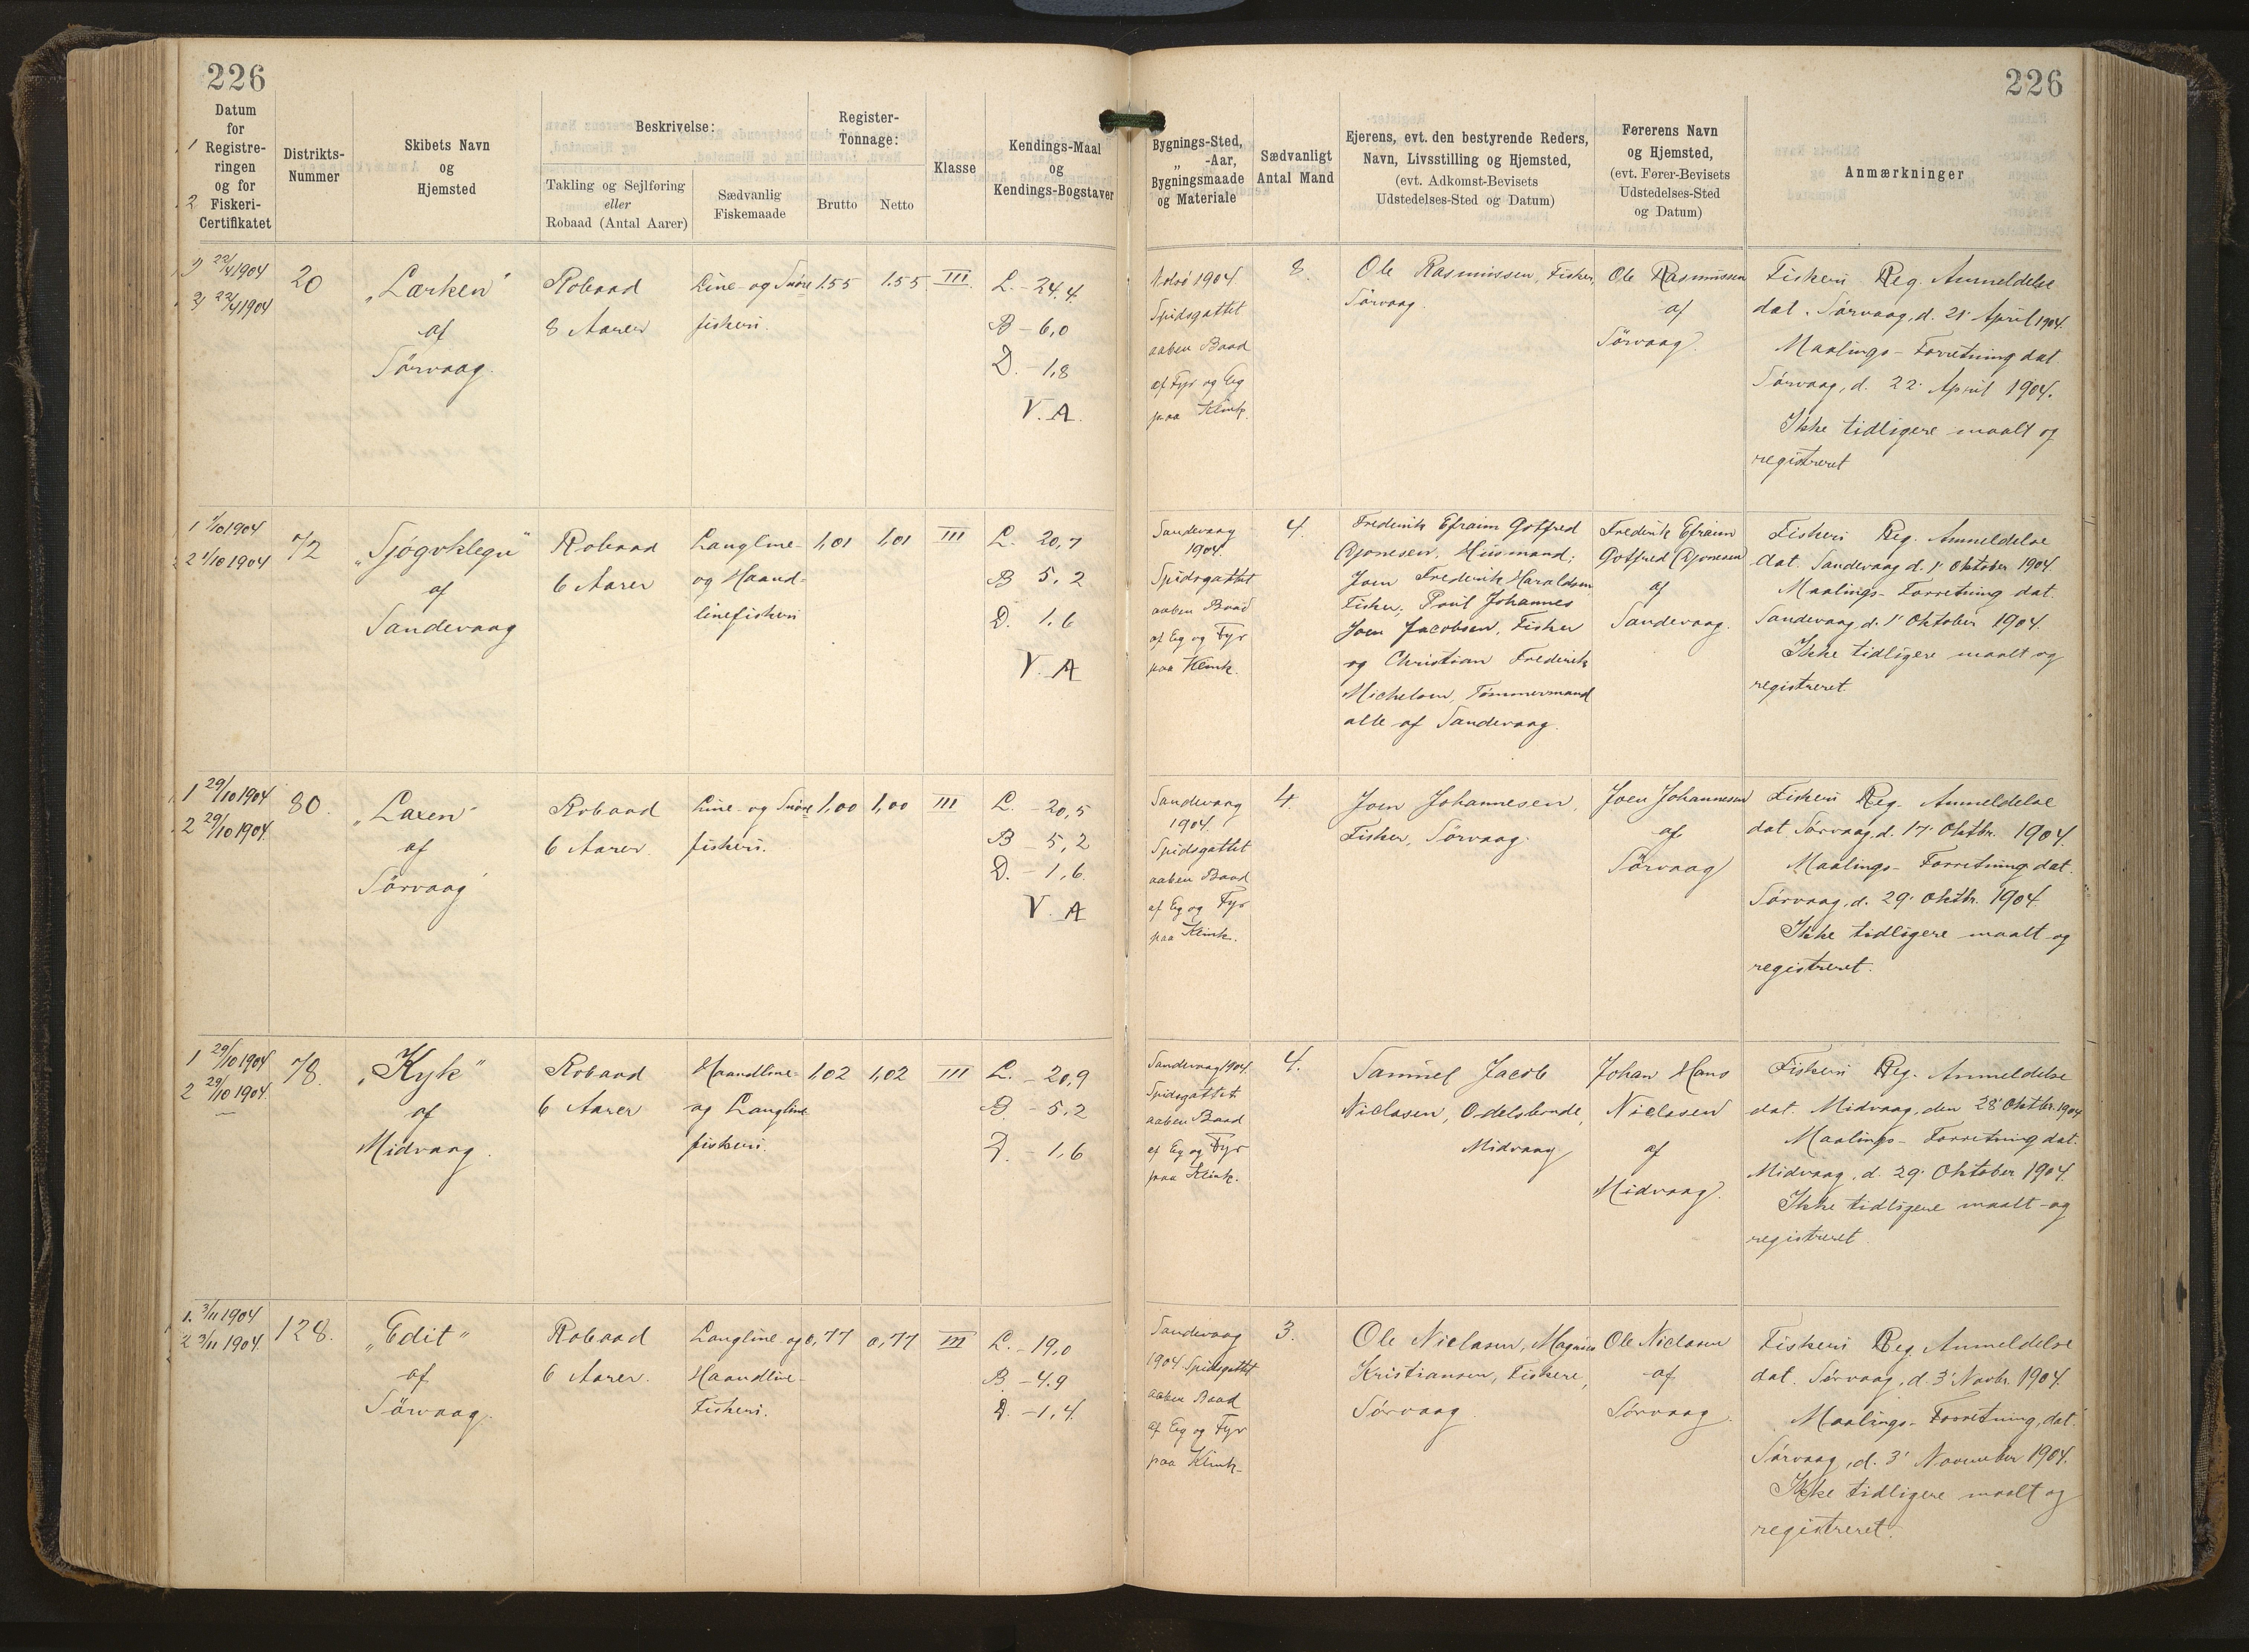 226
226
Datum
for
1 Registre-
ringen
og for
2 Fiskeri-
Certifikatet
Distrikts-
Nummer
Skibets Navn
og
Hjemsted
Beskrivelse:
Takling og Sejlføring
eller
Robaad (Antal Aarer)
Sædvanlig
Fiskemaade
Register-
Tonnage:
Brutto
Netto
Klasse
Kendings-Maal
og
Kendings-Bogstaver
Bygnings-Sted,
„ -Aar,
Bygningsmaade
og Materiale
Sædvanligt
Antal Mand
Ejerens, evt. den bestyrende Reders,
Navn, Livsstilling og Hjemsted,
(evt. Adkomst-Bevisets
Udstedelses-Sted og Datum)
Førerens Navn
og Hjemsted,
(evt. Fører-Bevisets
Udstedelses-Sted
og Datum)
Anmærkninger
22/4 1904
22/4 1904
20
„Lærken"
af
Sörvaag.
Robaad
8 Aarer
Line- og Snöre
fiskeri.
1.55
1.55
III
L. - 24.4.
B - 6,0
D. - 1,8
V. A.
1904.
Spidsgattet
aaben Baad
af Fyr og Eg
paa Klink.
8.
Ole Rasmussen, Fisker,
Sörvaag.
Ole Rasmussen
af
Sörvaag.
Fiskeri Reg. Anmeldelse
dat. Sørvaag, d. 21' April 1904.
Maalings-Forretning dat.
Sørvaag, d. 22' April 1904.
Ikke tidligere maalt og
registreret
1 1/10 1904
2 1/10 1904
72
af
Sandevaag
Robaad
6 Aarer
Langline-
og Haand-
linefiskeri
1,01
1,01
III
L. 20,7
B 5,2
D. 1.6
V. A
Sandevaag
1904.
Spidsgattet
aaben Baad
af Eg og Fyr
paa Klink.
4.
Frederik Efraim Gotfred
Djonesen, Husmand;
Joen Frederik Haraldsen
Fisker, Poul Johannes
Joen Jacobsen, Fisker
og Christian Frederik
Michelsen, Tømmermand
alle af Sandevaag.
Frederik Efraim
Gotfred Djonesen
af
Sandevaag.
Fiskeri Reg. Anmeldelse
dat. Sandevaag d. 1' Oktober 1904.
Maalings-Forretning dat.
Sandevaag, d. 1' Oktober 1904.
Ikke tidligere maalt og
registreret.
1 29/10 1904
2 29/10 1904.
80.
„Laxen"
af
Sörvaag
Robaad
6 Aarer.
Line- og Snöre
fiskeri.
1,00
1,00
III
L. - 20,5
B - 5,2
D. - 1,6.
V. A
Sandevaag
1904.
Spidsgattet
aaben Baad
af Eg og Fyr
paa Klink.
4.
Joen Johannesen,
Fisker, Sörvaag.
Joen Johannesen
af
Sörvaag
Fiskeri Reg. Anmeldelse
dat. Sørvaag, d. 17' Oktbr. 1904.
Maalings-Forretning dat.
Sørvaag, d. 29' Oktbr. 1904.
Ikke tidligere maalt og
registreret.
1 29/10 1904
2 29/10 1904.
78.
„Kyk"
af
Midvaag.
Robaad
6 Aarer
Haandline-
og Langline
fiskeri.
1,02
1,02
III
L. - 20,9
B. - 5,2
D. - 1,6
Sandevaag 1904.
Spidsgattet
aaben Baad
af Eg og Fyr
paa Klink.
4.
Samuel Jacob
Niclasen, Odelsbonde,
Midvaag
Johan Hans
Niclasen
af
Midvaag.
Fiskeri Reg. Anmeldelse
dat. Midvaag, den 28' Oktbr. 1904
Maalings-Forretning dat.
Midvaag, d. 29' Oktober 1904.
Ikke tidligere maalt og
registreret.
1. 3/11 1904
2 3/11 1904.
128.
„Edit"
af
Sörvaag.
Robaad
6 Aarer.
Langline og
Haandline-
Fiskeri.
0,77
0,77
III
L. - 19,0
B. - 4.9
D. - 1,4.
Sandevaag
1904 Spidsgattet
aaben Baad
af Eg og Fyr
paa Klink-
3.
Ole Niclasen, Magnus
Kristiansen, Fiskere,
Sørvaag.
Ole Niclasen
af
Sørvaag.
Fiskeri Reg. Anmeldelse
dat. Sørvaag, d. 3' Novbr. 1904.
Maalings-Forretning, dat.
Sørvaag, d. 3' November 1904.
Ikke tidligere maalt og
registreret.